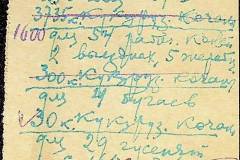 3735 к. Кукуруз. кочан.
1600
для 54 рабоч.
2 5 жереб.
300 к. Кукуруз. кочан.
для 4 бугаев
30 к. Кукуруз. кочан.
для 29 гусенят